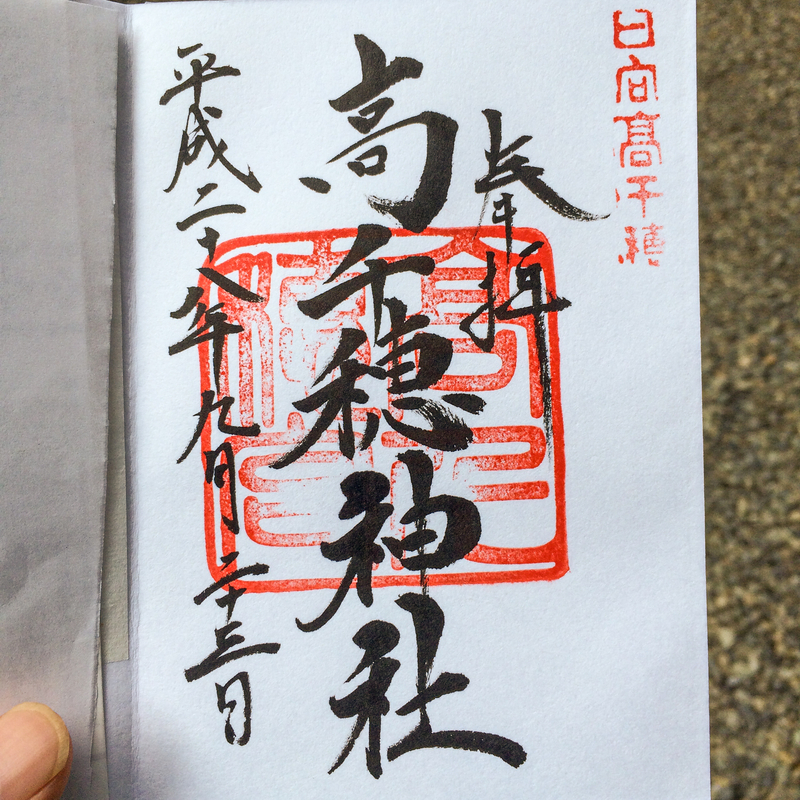 日向高千穂
奉拝
高千穂神社
平成二十八年九月二十三日